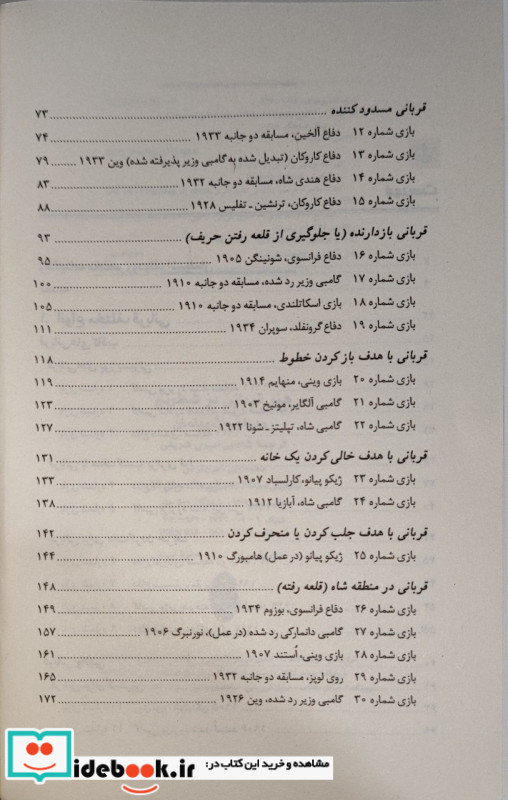 قربانی مسدود کننده ........ ۷۳
بازی شماره ۱۲ دفاع آلخین، مسابقه دو جانبه ۱۹۳۳ ........ ۷۴
بازی شماره ۱۳ دفاع کاروکان (تبدیل شده به گامبی وزیر پذیرفته شده) وین ۱۹۳۳ ........ ۷۹
بازی شماره ۱۴ دفاع هندی شاه، مسابقه دو جانبه ۱۹۳۲ ........ ۸۳
بازی شماره ۱۵ دفاع کاروکان، ترنشین ـ تفلیس ۱۹۲۸ ........ ۸۸
قربانی بازدارنده (یا جلوگیری از قلعه رفتن حریف) ........ ۹۳
بازی شماره ۱۶ دفاع فرانسوی، شونینگن ۱۹۰۵ ........ ۹۵
بازی شماره ۱۷ گامبی وزیر رد شده، مسابقه دو جانبه ۱۹۱۰ ........ ۱۰۰
بازی شماره ۱۸ بازی اسکاتلندی، مسابقه دو جانبه ۱۹۱۰ ........ ۱۰۵
بازی شماره ۱۹ دفاع گرونفلد، سوپران ۱۹۳۴ ........ ۱۱۱
قربانی با هدف باز کردن خطوط ........ ۱۱۸
بازی شماره ۲۰ بازی وینی، منهایم ۱۹۱۴ ........ ۱۱۹
بازی شماره ۲۱ گامبی آلگایر، مونیخ ۱۹۰۳ ........ ۱۲۳
بازی شماره ۲۲ گامبی شاه، تپلیتز ـ شونا ۱۹۲۲ ........ ۱۲۷
قربانی با هدف خالی کردن یک خانه ........ ۱۳۱
بازی شماره ۲۳ ژیکو پیانو، کارلسباد ۱۹۰۷ ........ ۱۳۳
بازی شماره ۲۴ گامبی شاه، آبازیا ۱۹۱۲ ........ ۱۳۸
قربانی با هدف جلب کردن یا منحرف کردن ........ ۱۴۲
بازی شماره ۲۵ ژیکو پیانو (در عمل) هامبورگ ۱۹۱۰ ........ ۱۴۴
قربانی در منطقه شاه (قلعه رفته) ........ ۱۴۸
بازی شماره ۲۶ دفاع فرانسوی، بوزوم ۱۹۳۴ ........ ۱۴۹
بازی شماره ۲۷ گامبی دانمارکی رد شده (در عمل)، نورنبرگ ۱۹۰۶ ........ ۱۵۷
بازی شماره ۲۸ بازی وینی، اُستند ۱۹۰۷ ........ ۱۶۱
بازی شماره ۲۹ روی لوپز، مسابقه دو جانبه ۱۹۳۲ ........ ۱۶۵
بازی شماره ۳۰ گامبی وزیر رد شده، وین ۱۹۲۶ ........ ۱۷۲
مشاهده و خرید این کتاب در:
idebook.ir